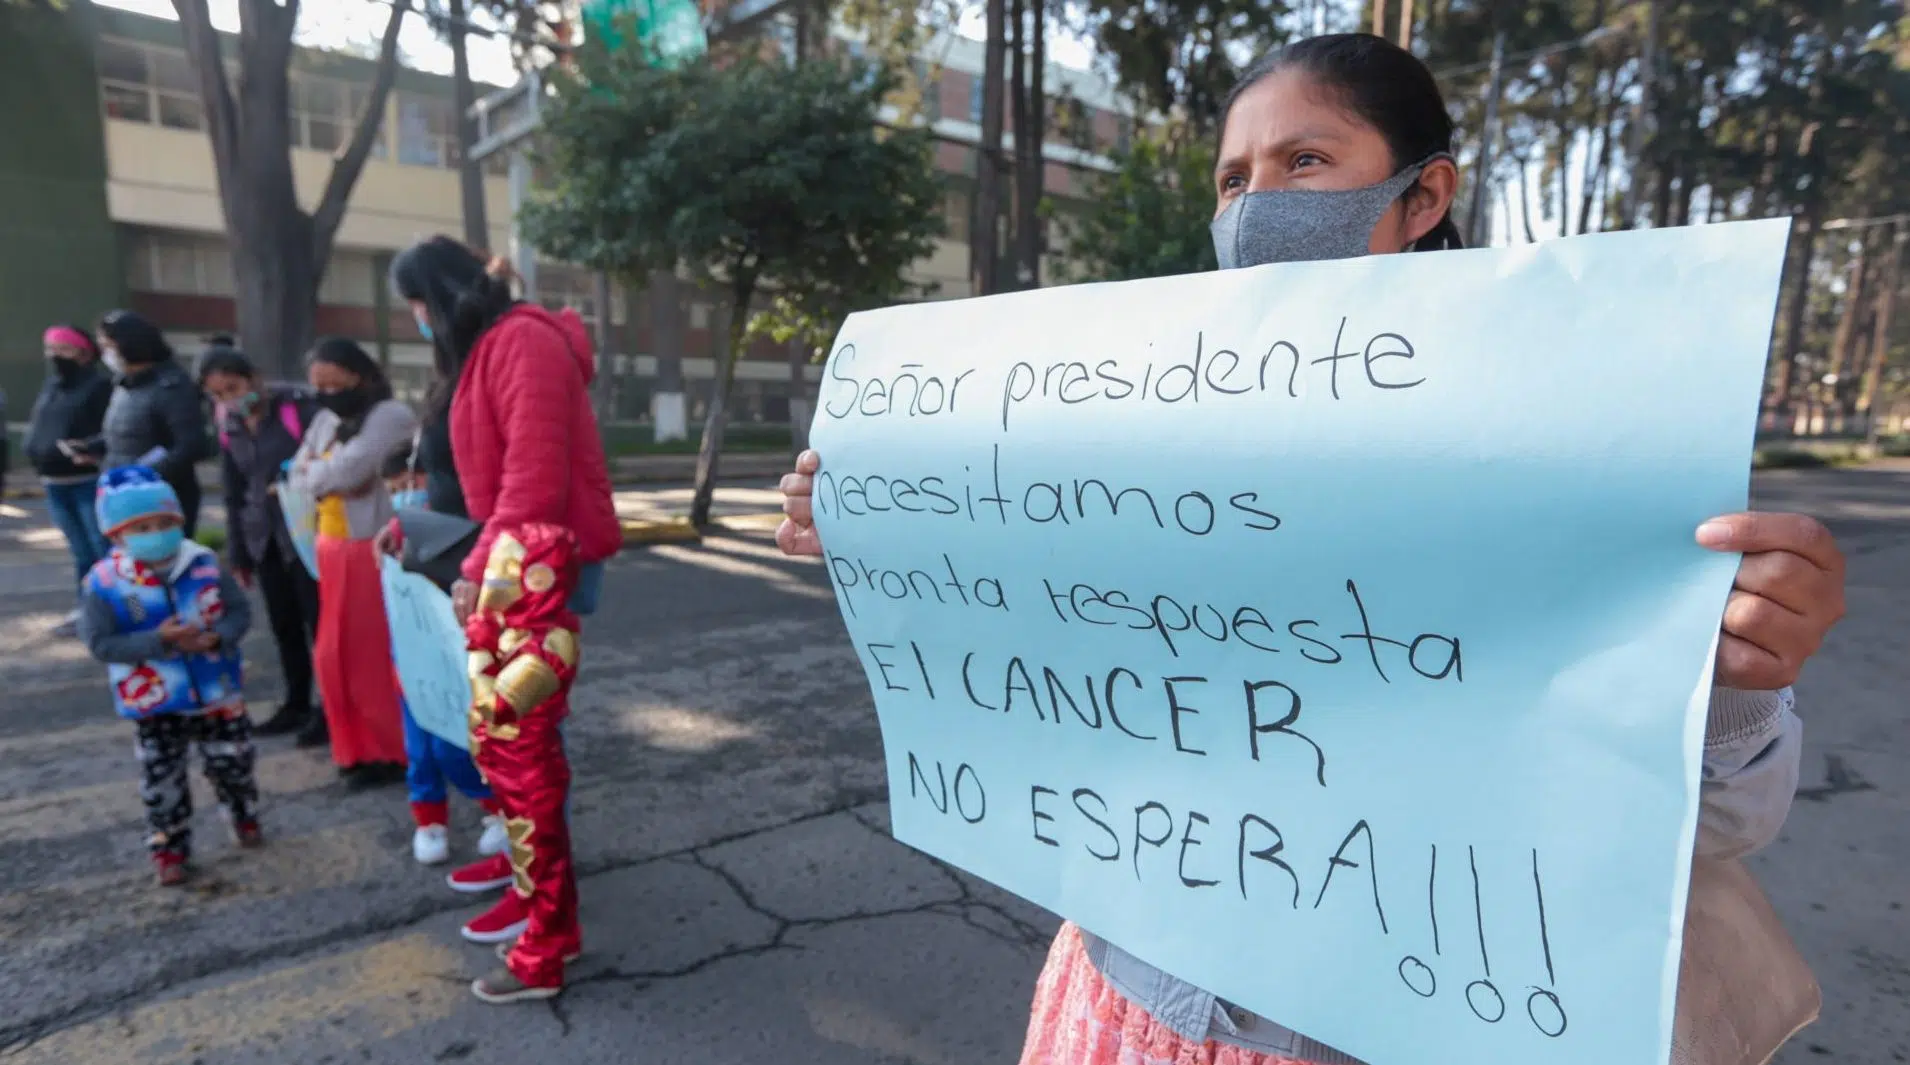 Señor presidente
necesitamos
pronta respuesta
El CANCER
NO ESPERA!!!